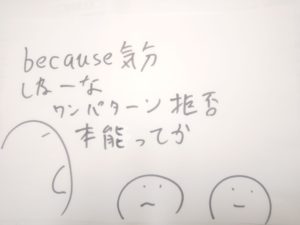 because気分
しなーな
ワンパターン拒否
本能ってか